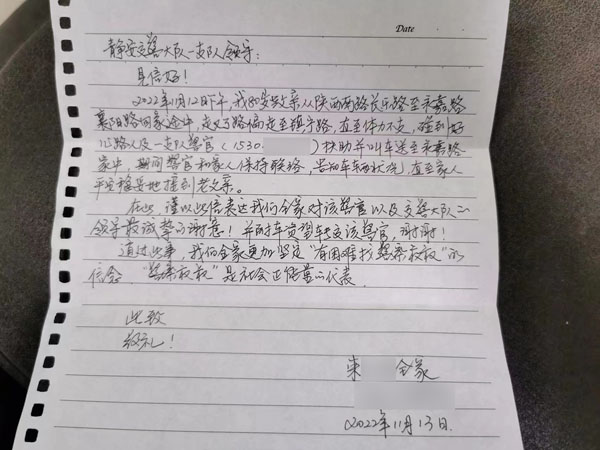 Date
静安交警大队一支队领导:
见信好!
2022年11月12日下午,我80岁父亲从陕西南路长乐路至永嘉路
襄阳路回家途中,走叉了路偏走至镇宁路,直至体力不支,碰到好
心路人及一支队警官(1530.      )扶助并叫车送至永嘉路
家中,期间警官和家人保持联络,告知车辆状况,直至家人
平安稳妥地接到老父亲。
在此,谨以此信表达我们全家对该警官以及交警大队
领导最诚挚的谢意! 该警官,谢谢!
通过此事,我们全家更加坚定"有困难找警察叔叔"的
信念,"警察叔叔"是社会正能量的代表
此致
敬礼!
全家
2022年11月13日.